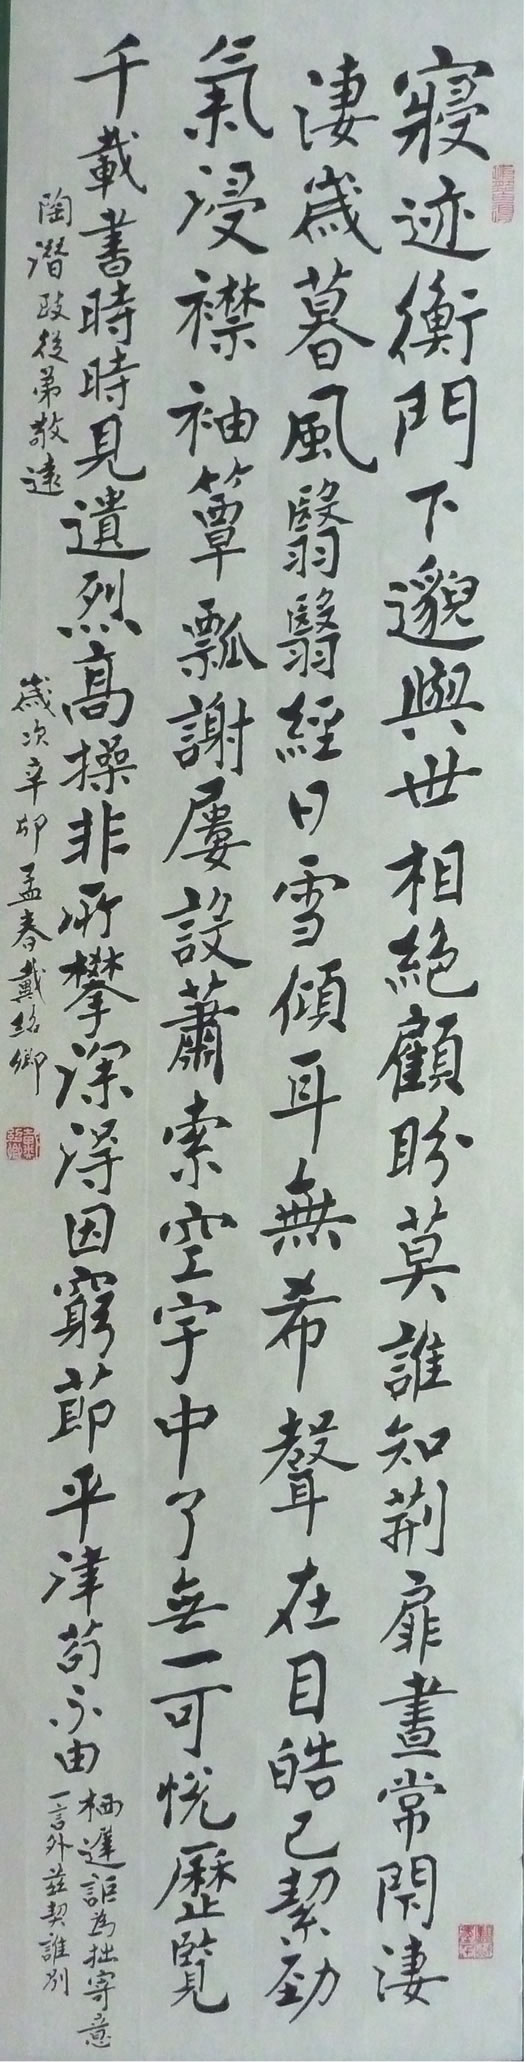 寢迹衡門下邈與世相絕顧盼莫誰知荊扉晝常閇淒
淒歲暮風翳翳經日雪傾耳無希聲在目皓已絜勁
氣浸襟袖簞瓢謝屢設蕭索空宇中了無一可悅歷覽
千載書時時見遺烈高操非所攀深得因窮節平津苟不由
栖遲詎為拙寄意
一言外茲契誰別
陶潛致從弟敬遠
歲次辛卯孟春戴紹卿